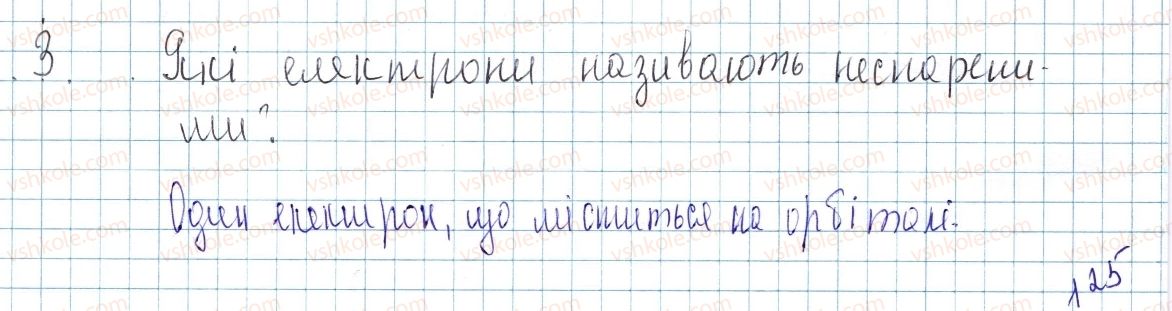 3. Які електрони називають неспарени-
ми?
Один електрон, що міститься на орбіталі.
125